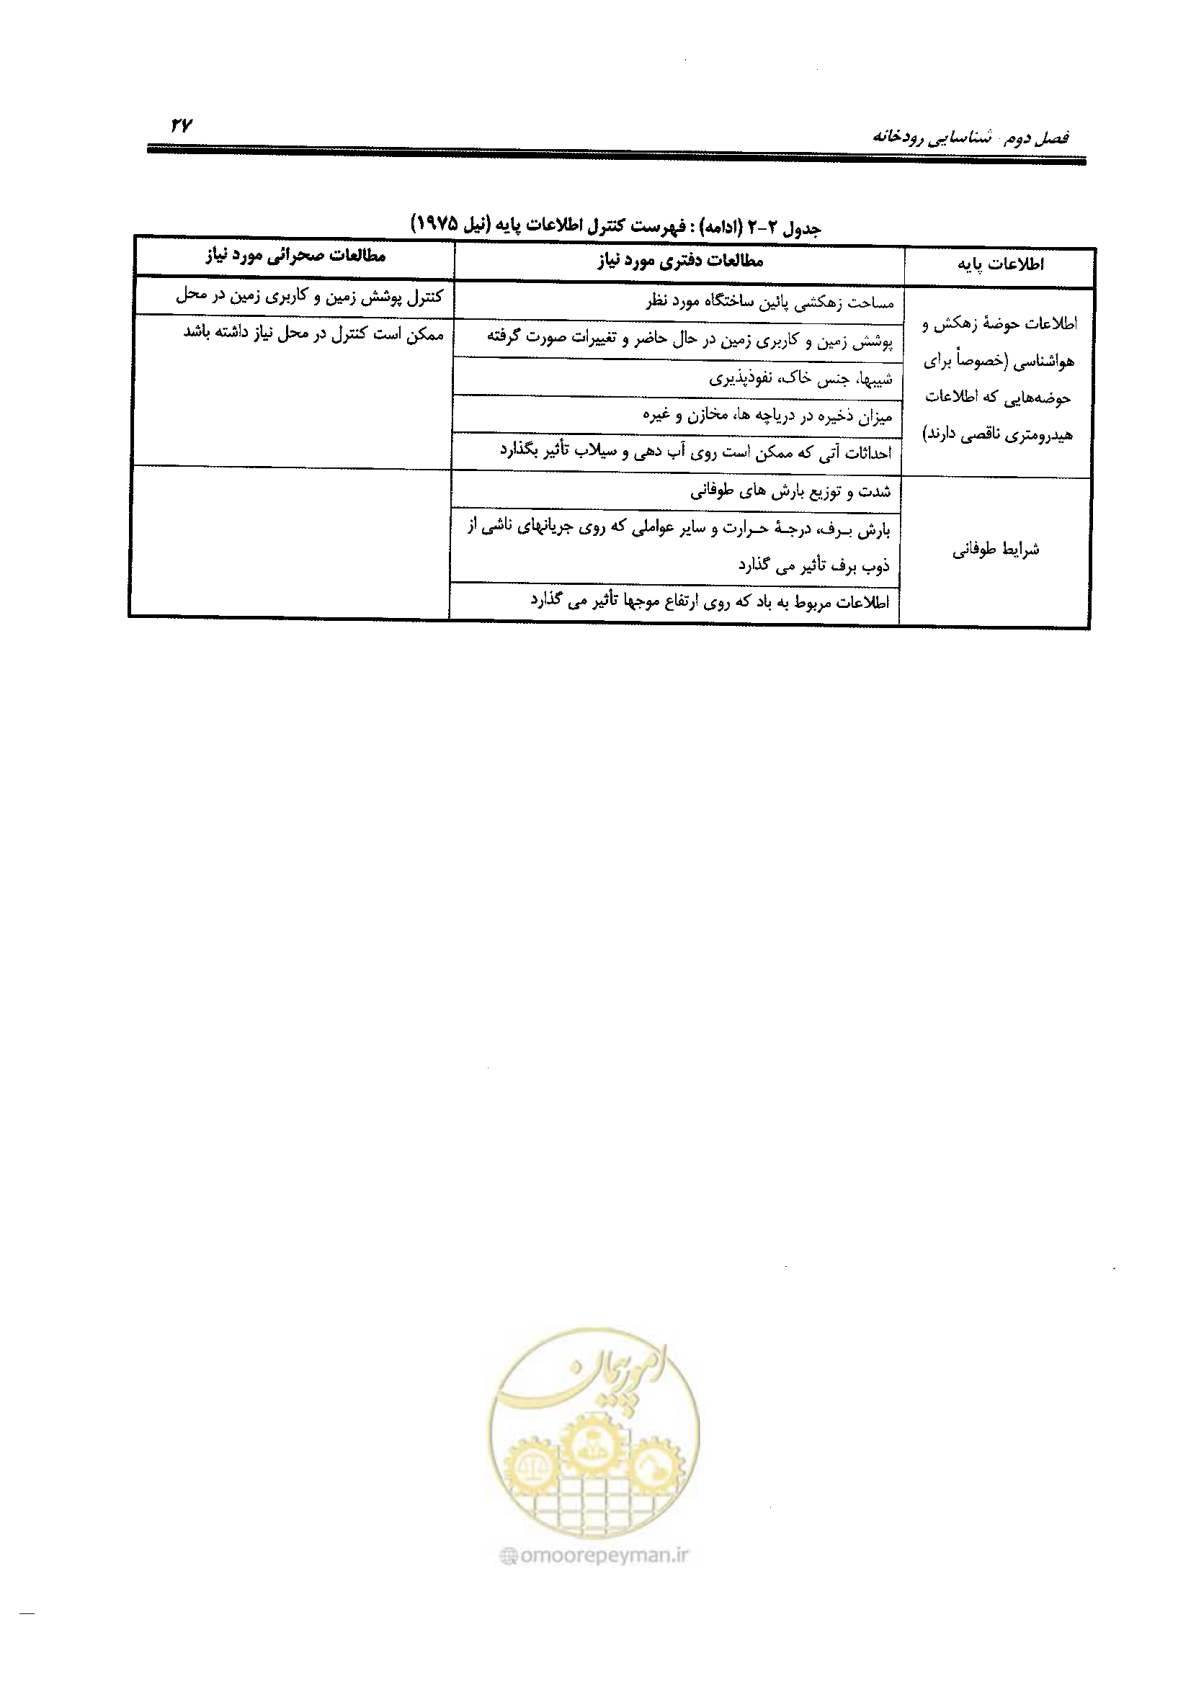 فصل دوم - شناسایی رودخانه
۲۷
جدول ۲-۲ (ادامه) : فهرست کنترل اطلاعات پایه (نیل ۱۹۷۵)
اطلاعات پایه
مطالعات دفتری مورد نیاز
مطالعات صحرائی مورد نیاز
اطلاعات حوضهٔ زهکش و
هواشناسی (خصوصاً برای
حوضه‌هایی که اطلاعات
هیدرومتری ناقصی دارند)
مساحت زهکشی پائین ساختگاه مورد نظر
کنترل پوشش زمین و کاربری زمین در محل
پوشش زمین و کاربری زمین در حال حاضر و تغییرات صورت گرفته
ممکن است کنترل در محل نیاز داشته باشد
شیبها، جنس خاک، نفوذپذیری
میزان ذخیره در دریاچه ها، مخازن و غیره
احداثات آتی که ممکن است روی آب دهی و سیلاب تأثیر بگذارد
شرایط طوفانی
شدت و توزیع بارش های طوفانی
بارش برف، درجهٔ حرارت و سایر عواملی که روی جریانهای ناشی از
ذوب برف تأثیر می گذارد
اطلاعات مربوط به باد که روی ارتفاع موجها تأثیر می گذارد
امور پیمان
omoorepeyman.ir